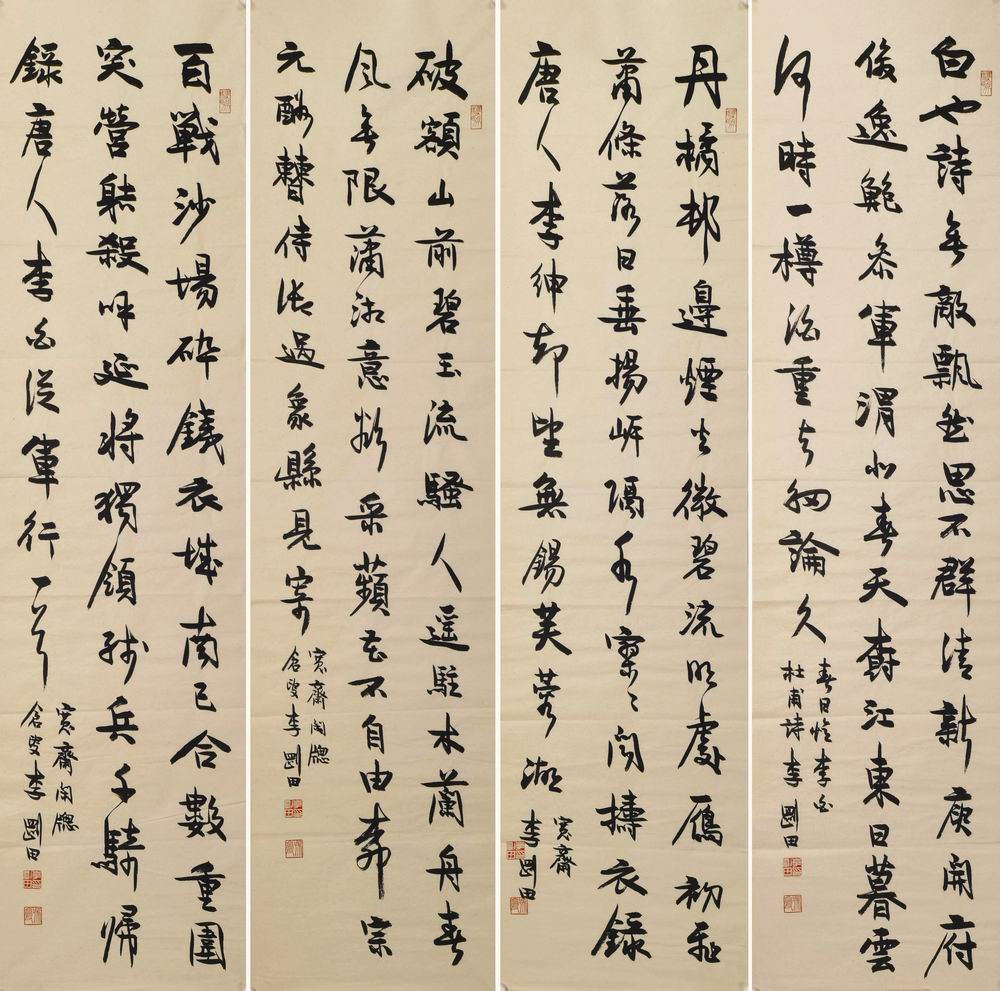 白也詩無敵飄然思不群清新庾開府
俊逸鮑參軍渭北春天樹江東日暮雲
何時一樽酒重与細論文
春日憶李白
杜甫詩李剛田
丹橘邨邊煙火微碧流明處雁初飛
蕭條落日垂楊岸隔水寥〻聞擣衣錄
唐人李紳却望無錫芙蓉湖
寬齋
李剛田
破額山前碧玉流騷人遥駐木蘭舟春
風無限瀟湘意欲采蘋花不自由柳宗
元酬曹侍御過象縣見寄
寬齋閑牕
倉叟李剛田
百戰沙場碎鐵衣城南已合數重圍
突營射殺呼延將獨領殘兵千騎歸
錄唐人李白從軍行一首
寬齋閑牕
倉叟李剛田